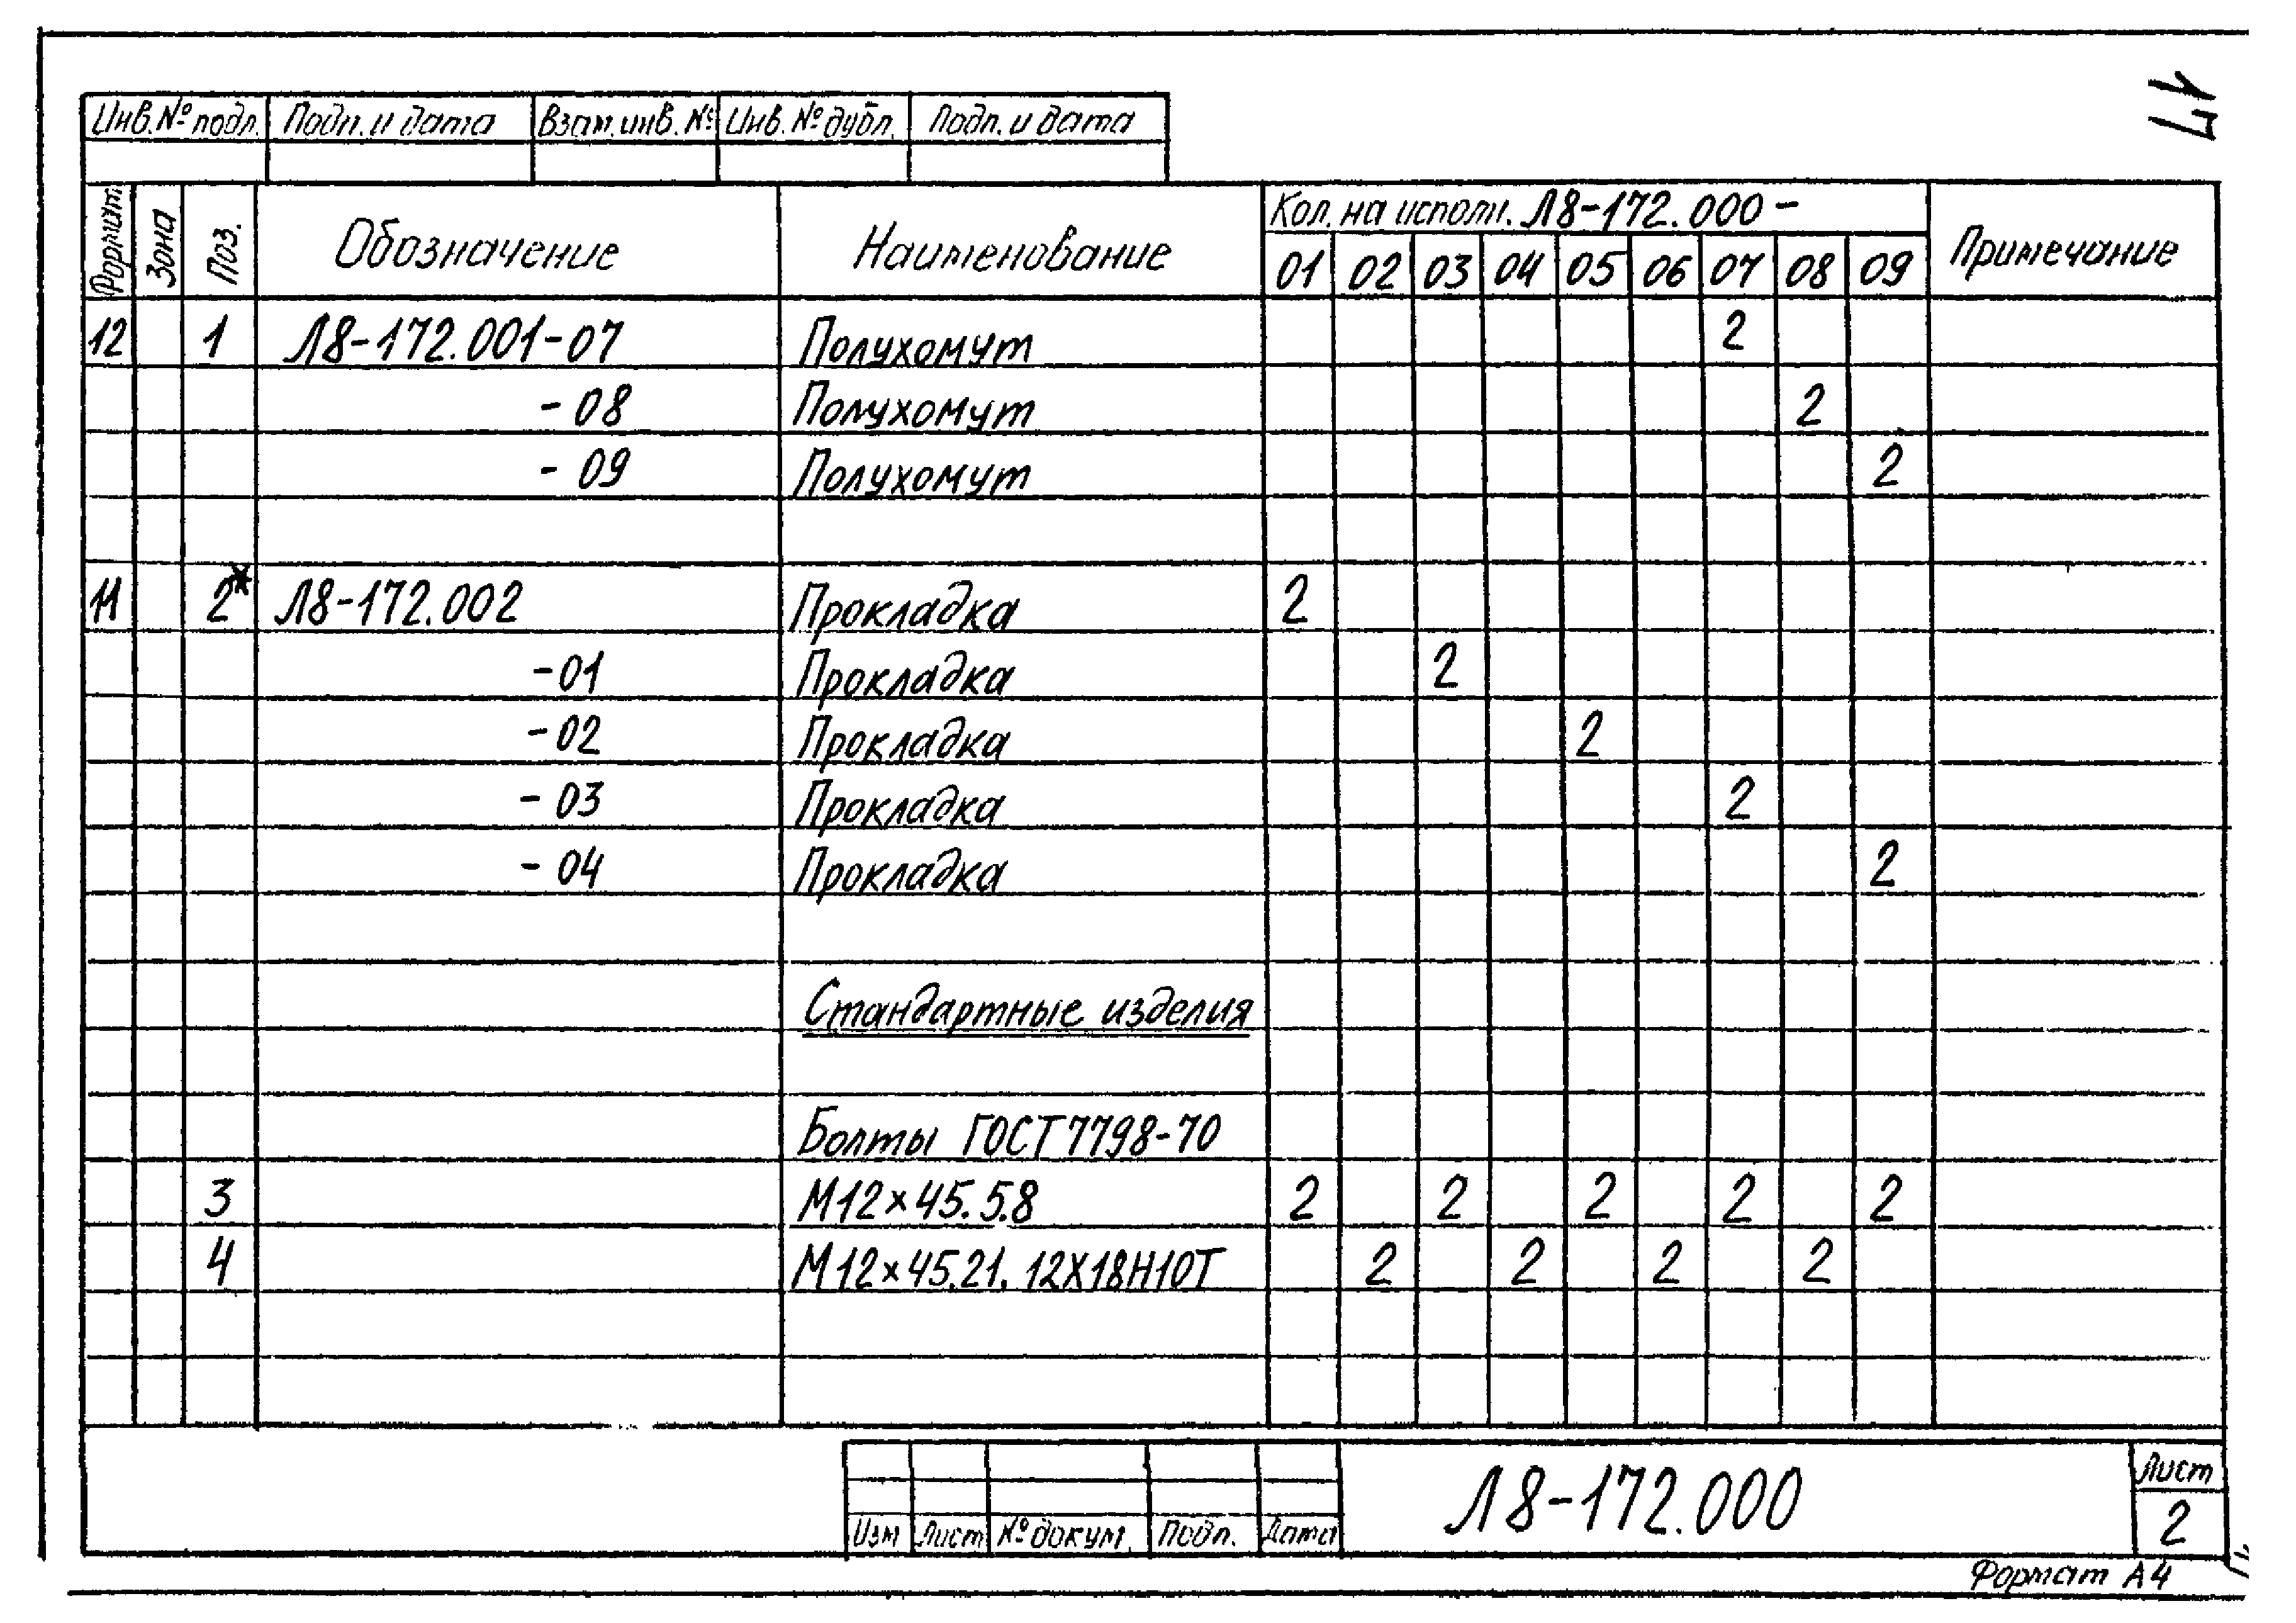 47
Инв.№ подл. Подп. и дата Взам.инв.№ Инв.№ дубл. Подп. и дата
Формат Зона Поз. Обозначение Наименование Кол. на исполн. Л8-172.000- Примечание
01 02 03 04 05 06 07 08 09
12 1 Л8-172.001-07 Полухомут 2
-08 Полухомут 2
-09 Полухомут 2
11 2* Л8-172.002 Прокладка 2
-01 Прокладка 2
-02 Прокладка 2
-03 Прокладка 2
-04 Прокладка 2
Стандартные изделия
Болты ГОСТ 7798-70
3 М12×45.5.8 2 2 2 2 2
4 М12×45.21.12Х18Н10Т 2 2 2 2
Изм Лист № докум. Подп. Дата Л8-172.000 Лист
2
Формат А4